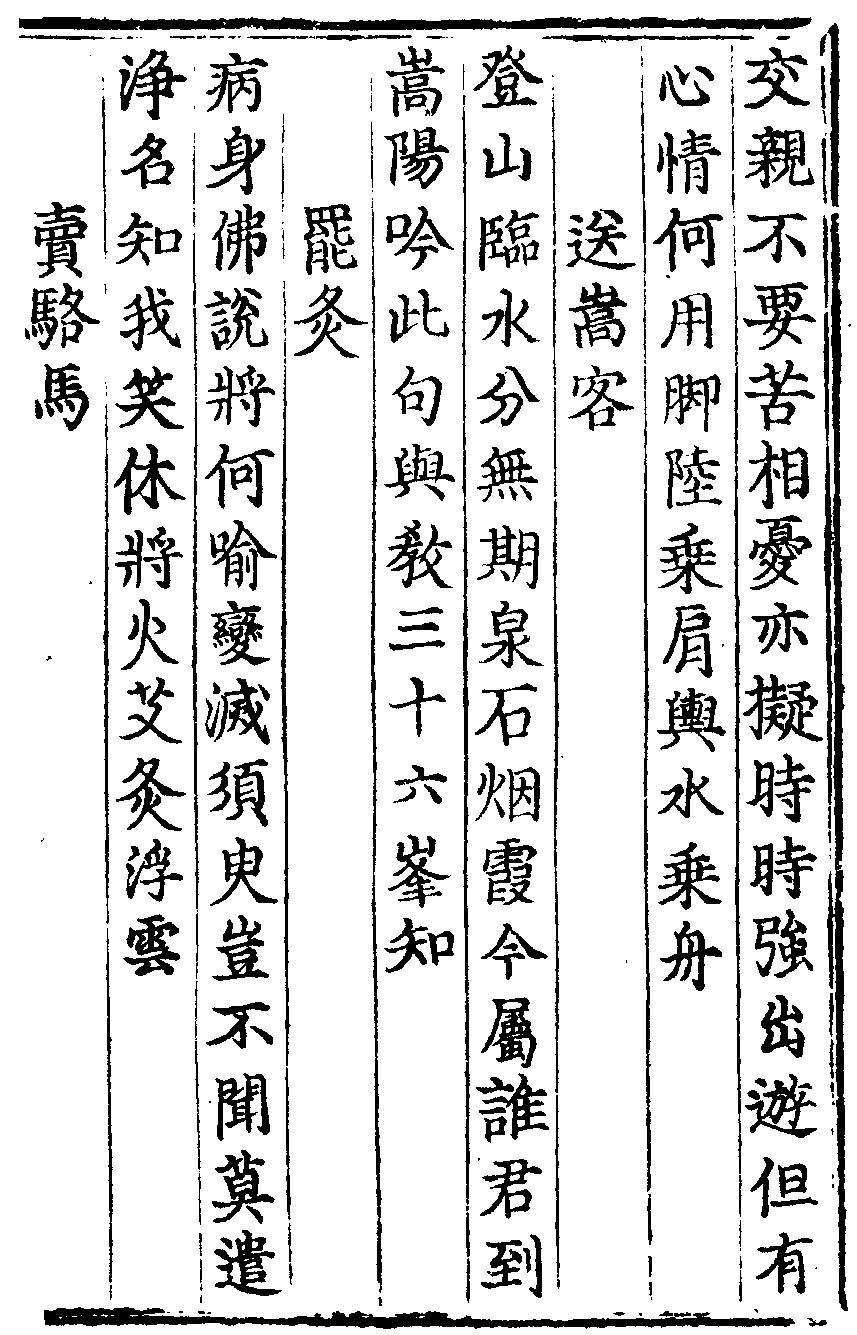 交親不要苦相憂亦擬時時強出遊但有
心情何用脚陸乗肩輿水乗舟
送嵩客
登山臨水分無期泉石烟霞今屬誰君到
嵩陽吟此句與教三十六峯知
罷灸
病身佛說將何喻變滅須臾豈不聞莫遣
浄名知我笑休將火艾灸浮雲
賣駱馬